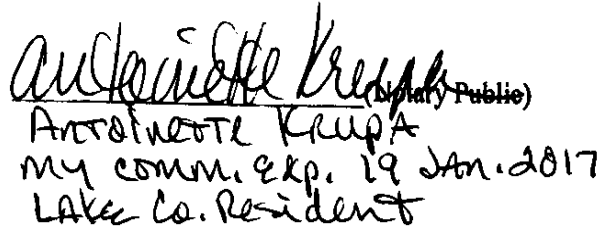 Antoinette Krupa (Notary Public)
ANTOINETTE KRUPA
my comm. exp. 19 JAN. 2017
LAKE Co. Resident